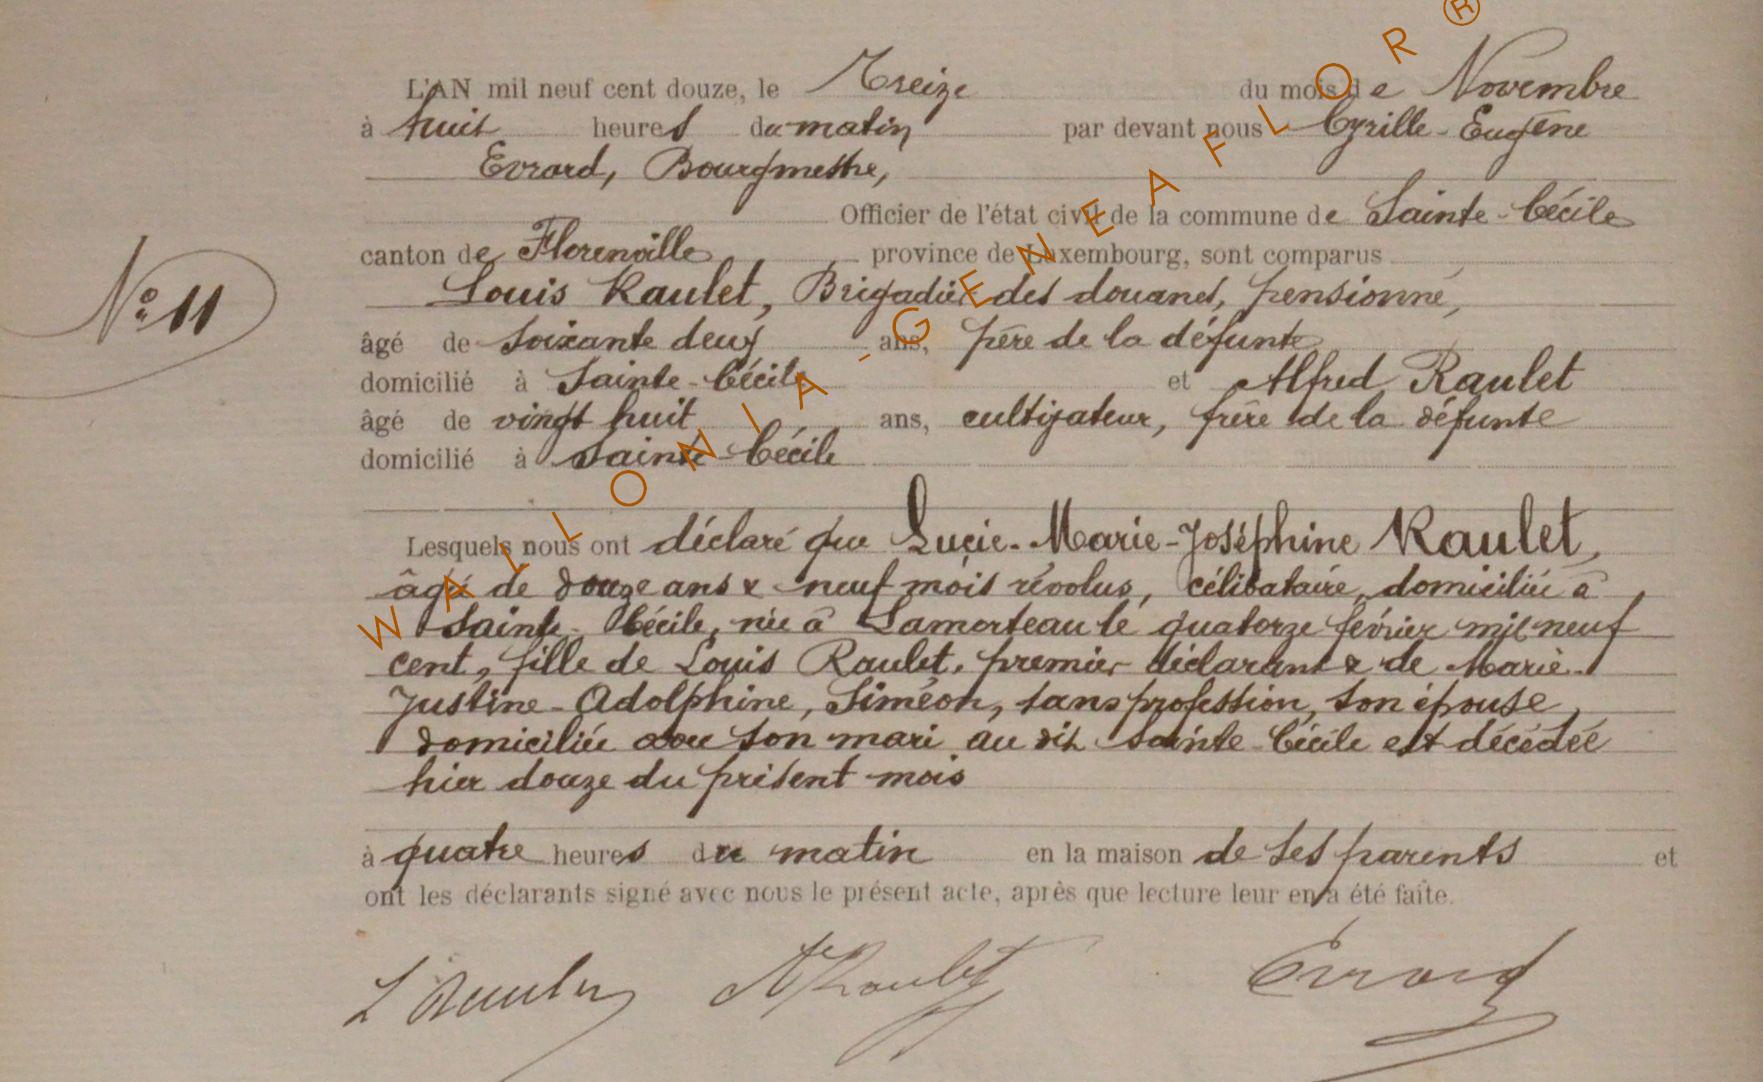 L'AN mil neuf cent douze, le Treize du mois de Novembre
à huit heures du matin par devant nous Cyrille-Eugène
Evrard, Bourgmestre,
Officier de l'état civil de la commune de Sainte-Cécile
canton de Florenville province de Luxembourg, sont comparus
Louis Raulet, Brigadier des douanes, pensionné,
N° 11
âgé de soixante deux ans, père de la défunte
domicilié à Sainte-Cécile et Alfred Raulet
âgé de vingt huit ans, cultivateur, frère de la défunte
domicilié à Sainte Cécile
Lesquels nous ont déclaré que Lucie-Marie-Joséphine Raulet,
âgé de douze ans & neuf mois révolus, célibataire, domiciliée à
Sainte-Cécile, née à Lamorteau le quatorze février mil neuf
cent, fille de Louis Raulet, premier déclarant & de Marie-
Justine-Adolphine, Siméon, sans profession, son épouse,
domiciliée avec son mari au dit Sainte-Cécile est décédée
hier douze du présent mois
à quatre heures du matin en la maison de ses parents et
ont les déclarants signé avec nous le présent acte, après que lecture leur en a été faite.
L Raulet A Raulet Evrard
WALLONIA-GENEAFLOR®